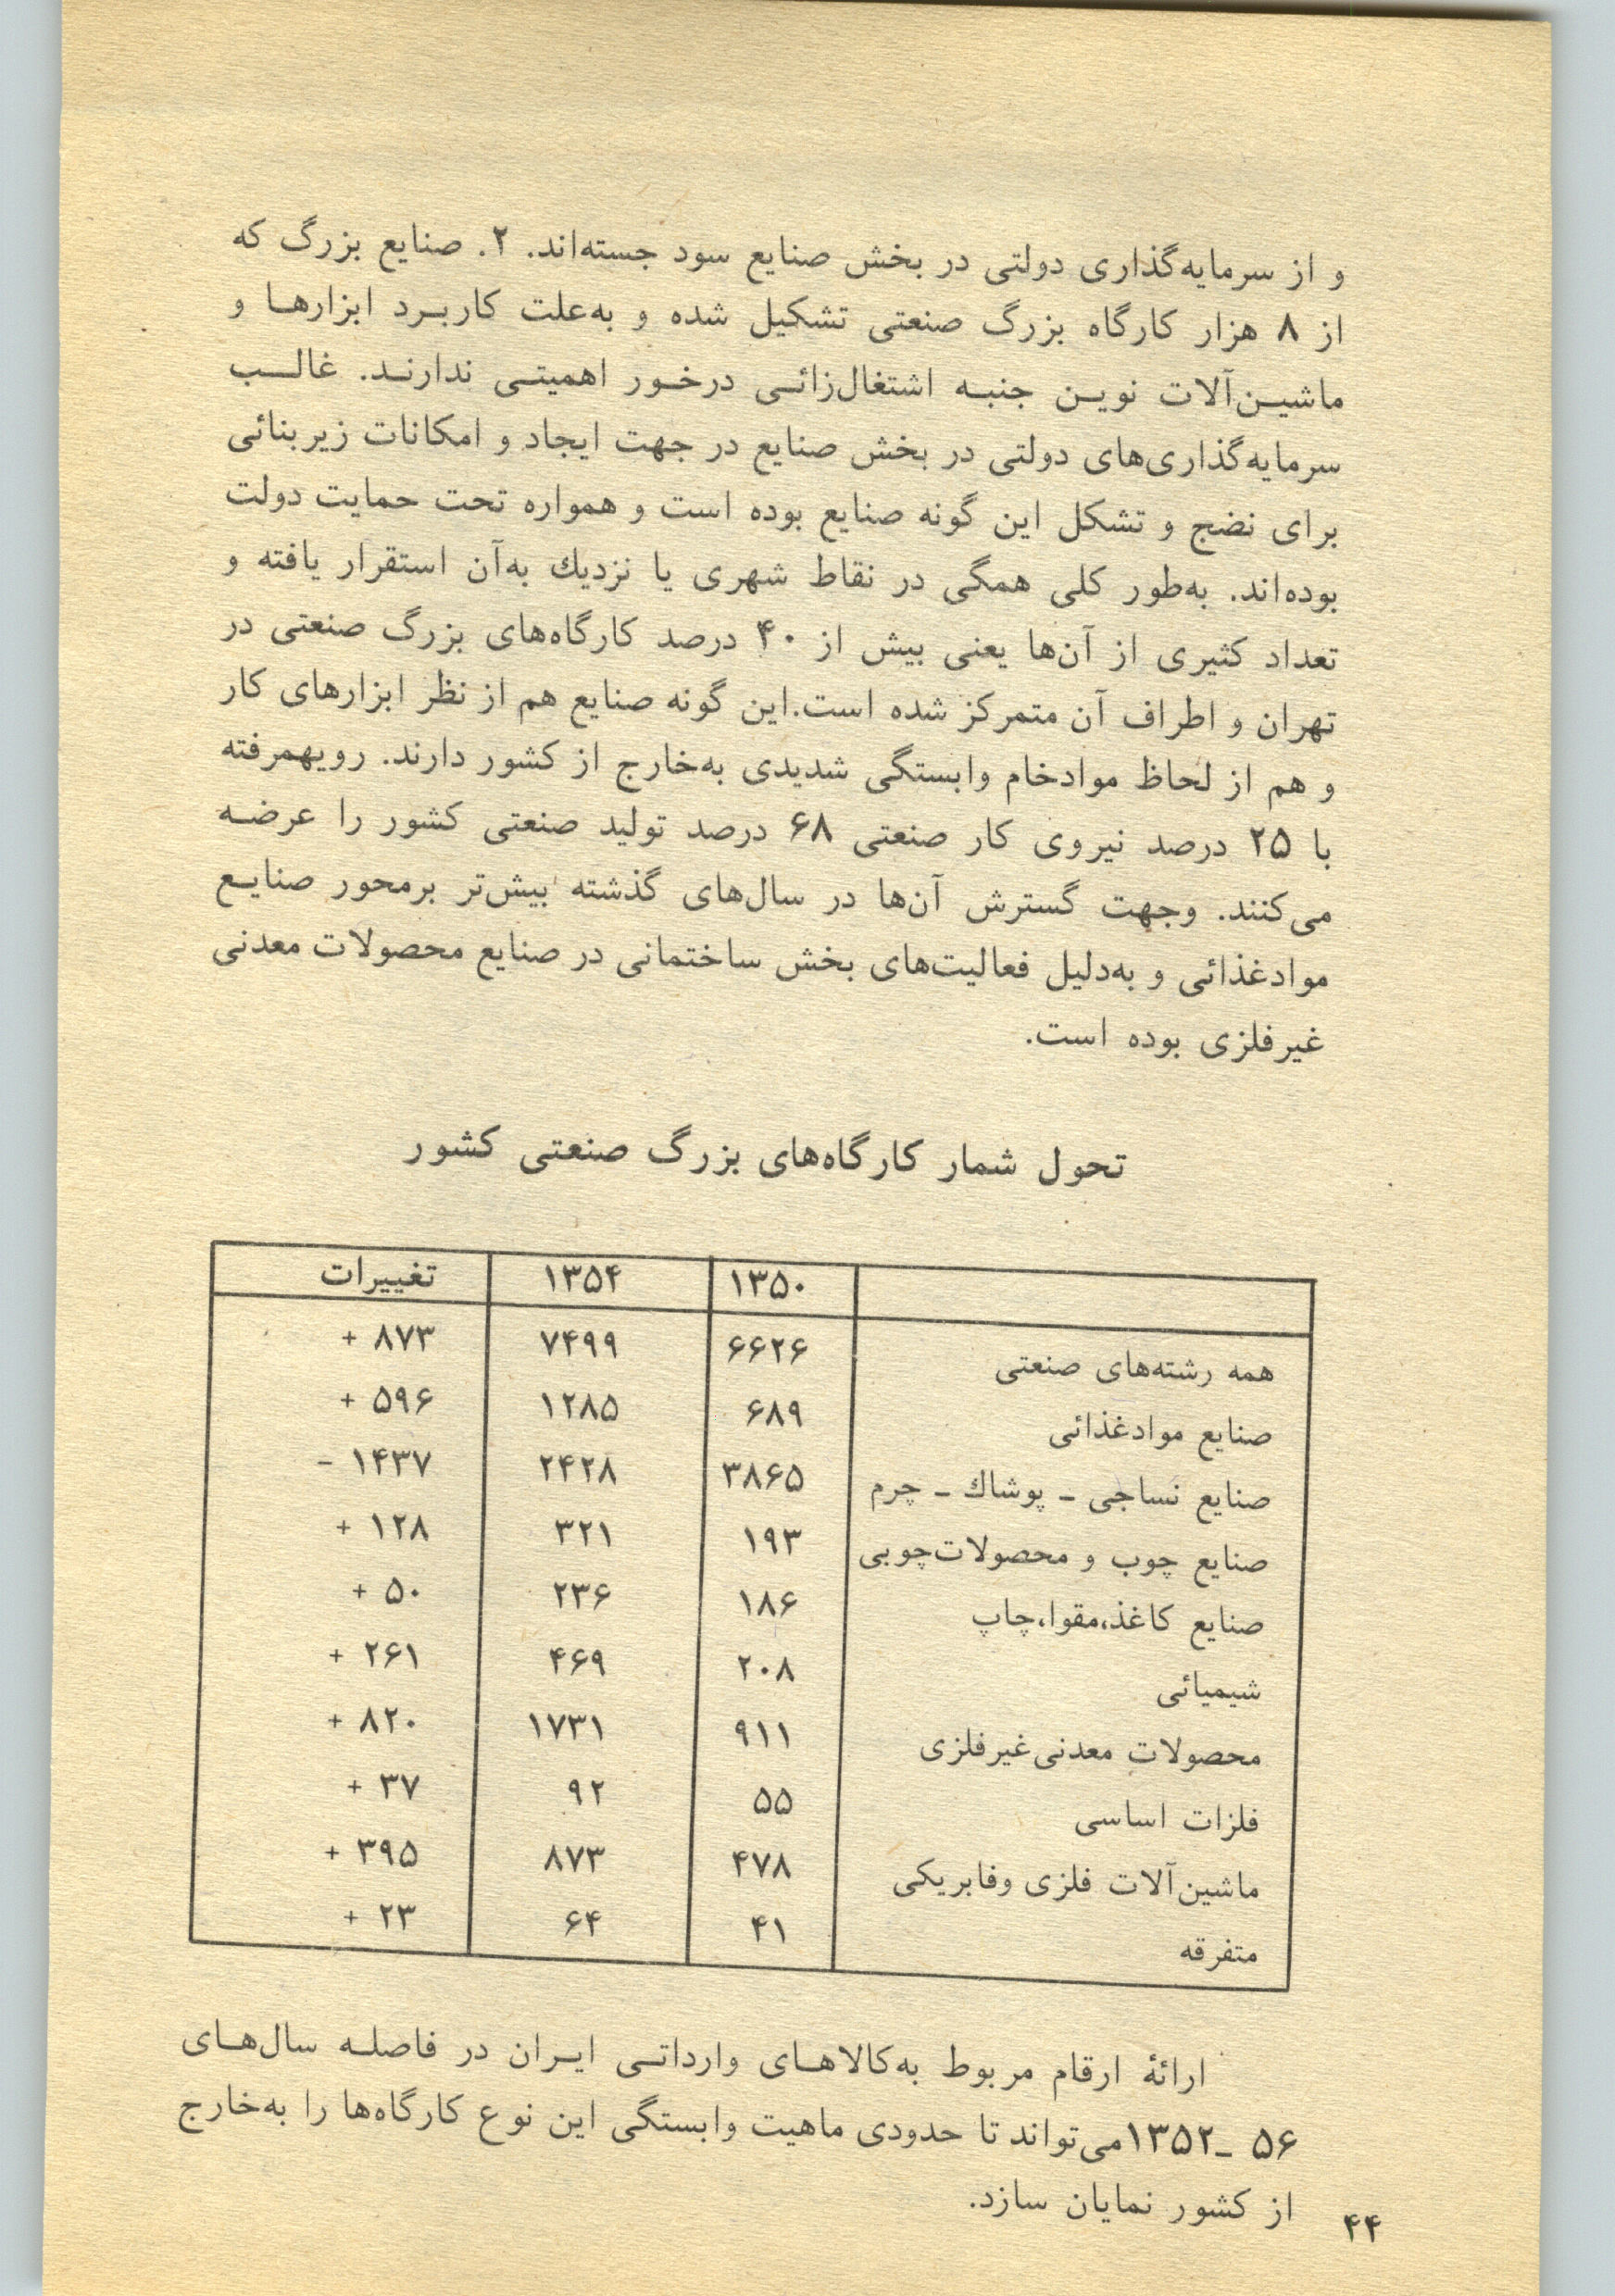 و از سرمایه‌گذاری دولتی در بخش صنایع سود جسته‌اند. ۲. صنایع بزرگ که
از ۸ هزار کارگاه بزرگ صنعتی تشکیل شده و به‌علت کاربرد ابزارها و
ماشین‌آلات نوین جنبه اشتغال‌زائی درخور اهمیتی ندارند. غالب
سرمایه‌گذاری‌های دولتی در بخش صنایع در جهت ایجاد و امکانات زیربنائی
برای نضج و تشکل این گونه صنایع بوده است و همواره تحت حمایت دولت
بوده‌اند. به‌طور کلی همگی در نقاط شهری یا نزدیك به‌آن استقرار یافته و
تعداد کثیری از آن‌ها یعنی بیش از ۴۰ درصد کارگاه‌های بزرگ صنعتی در
تهران و اطراف آن متمرکز شده است. این گونه صنایع هم از نظر ابزارهای کار
و هم از لحاظ موادخام وابستگی شدیدی به‌خارج از کشور دارند. رویهمرفته
با ۲۵ درصد نیروی کار صنعتی ۶۸ درصد تولید صنعتی کشور را عرضه
می‌کنند. وجهت گسترش آن‌ها در سال‌های گذشته بیش‌تر برمحور صنایع
موادغذائی و به‌دلیل فعالیت‌های بخش ساختمانی در صنایع محصولات معدنی
غیرفلزی بوده است.
تحول شمار کارگاه‌های بزرگ صنعتی کشور
۱۳۵۰ ۱۳۵۴ تغییرات
همه رشته‌های صنعتی ۶۶۲۶ ۷۴۹۹ ۸۷۳ +
صنایع موادغذائی ۶۸۹ ۱۲۸۵ ۵۹۶ +
صنایع نساجی - پوشاك - چرم ۳۸۶۵ ۲۴۲۸ ۱۴۳۷ -
صنایع چوب و محصولات‌چوبی ۱۹۳ ۳۲۱ ۱۲۸ +
صنایع کاغذ،مقوا،چاپ ۱۸۶ ۲۳۶ ۵۰ +
شیمیائی ۲۰۸ ۴۶۹ ۲۶۱ +
محصولات معدنی‌غیرفلزی ۹۱۱ ۱۷۳۱ ۸۲۰ +
فلزات اساسی ۵۵ ۹۲ ۳۷ +
ماشین‌آلات فلزی وفابریکی ۴۷۸ ۸۷۳ ۳۹۵ +
متفرقه ۴۱ ۶۴ ۲۳ +
ارائهٔ ارقام مربوط به‌کالاهای وارداتی ایران در فاصله سال‌های
۵۶ -۱۳۵۲می‌تواند تا حدودی ماهیت وابستگی این نوع کارگاه‌ها را به‌خارج
از کشور نمایان سازد.
۴۴